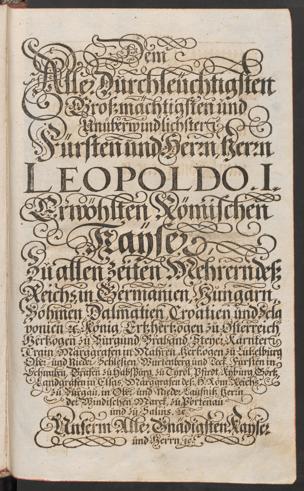 Dem
Aller Durchleuchtigsten
Großmächtigsten und
Unüberwindlichsten
Fürsten und Herrn, Herrn
LEOPOLDO. I.
Erwöhlten Römischen
Kayser
Zu allen Zeiten Mehrern deß
Reichs, in Germanien, Hungarn,
Böhmen Dalmatien Croatien und Scla
vonien ꝛc. König, Ertzhertzogen zu Österreich
Hertzogen zu Burgund Braband Steyer Kärnten
Crain, Marggrafen in Mähren, Hertzogen zu Lützelburg
Ober- und Nider- Schlesien, Würtenberg und Teck, Fürsten in
Schwaben, Grafen zu Habspurg, zu Tyrol, Pfirdt, Kyburg, Görtz,
Landgrafen in Elsas, Marggrafen deß H. Röm: Reichs,
zu Burgau, in Ober- und Nider- Laußnitz, Herrn
der Windischen Marck, zu Portenau
und zu Salins, ꝛc.
Unserm Aller Gnädigsten Kayser
und Herrn, ꝛc.